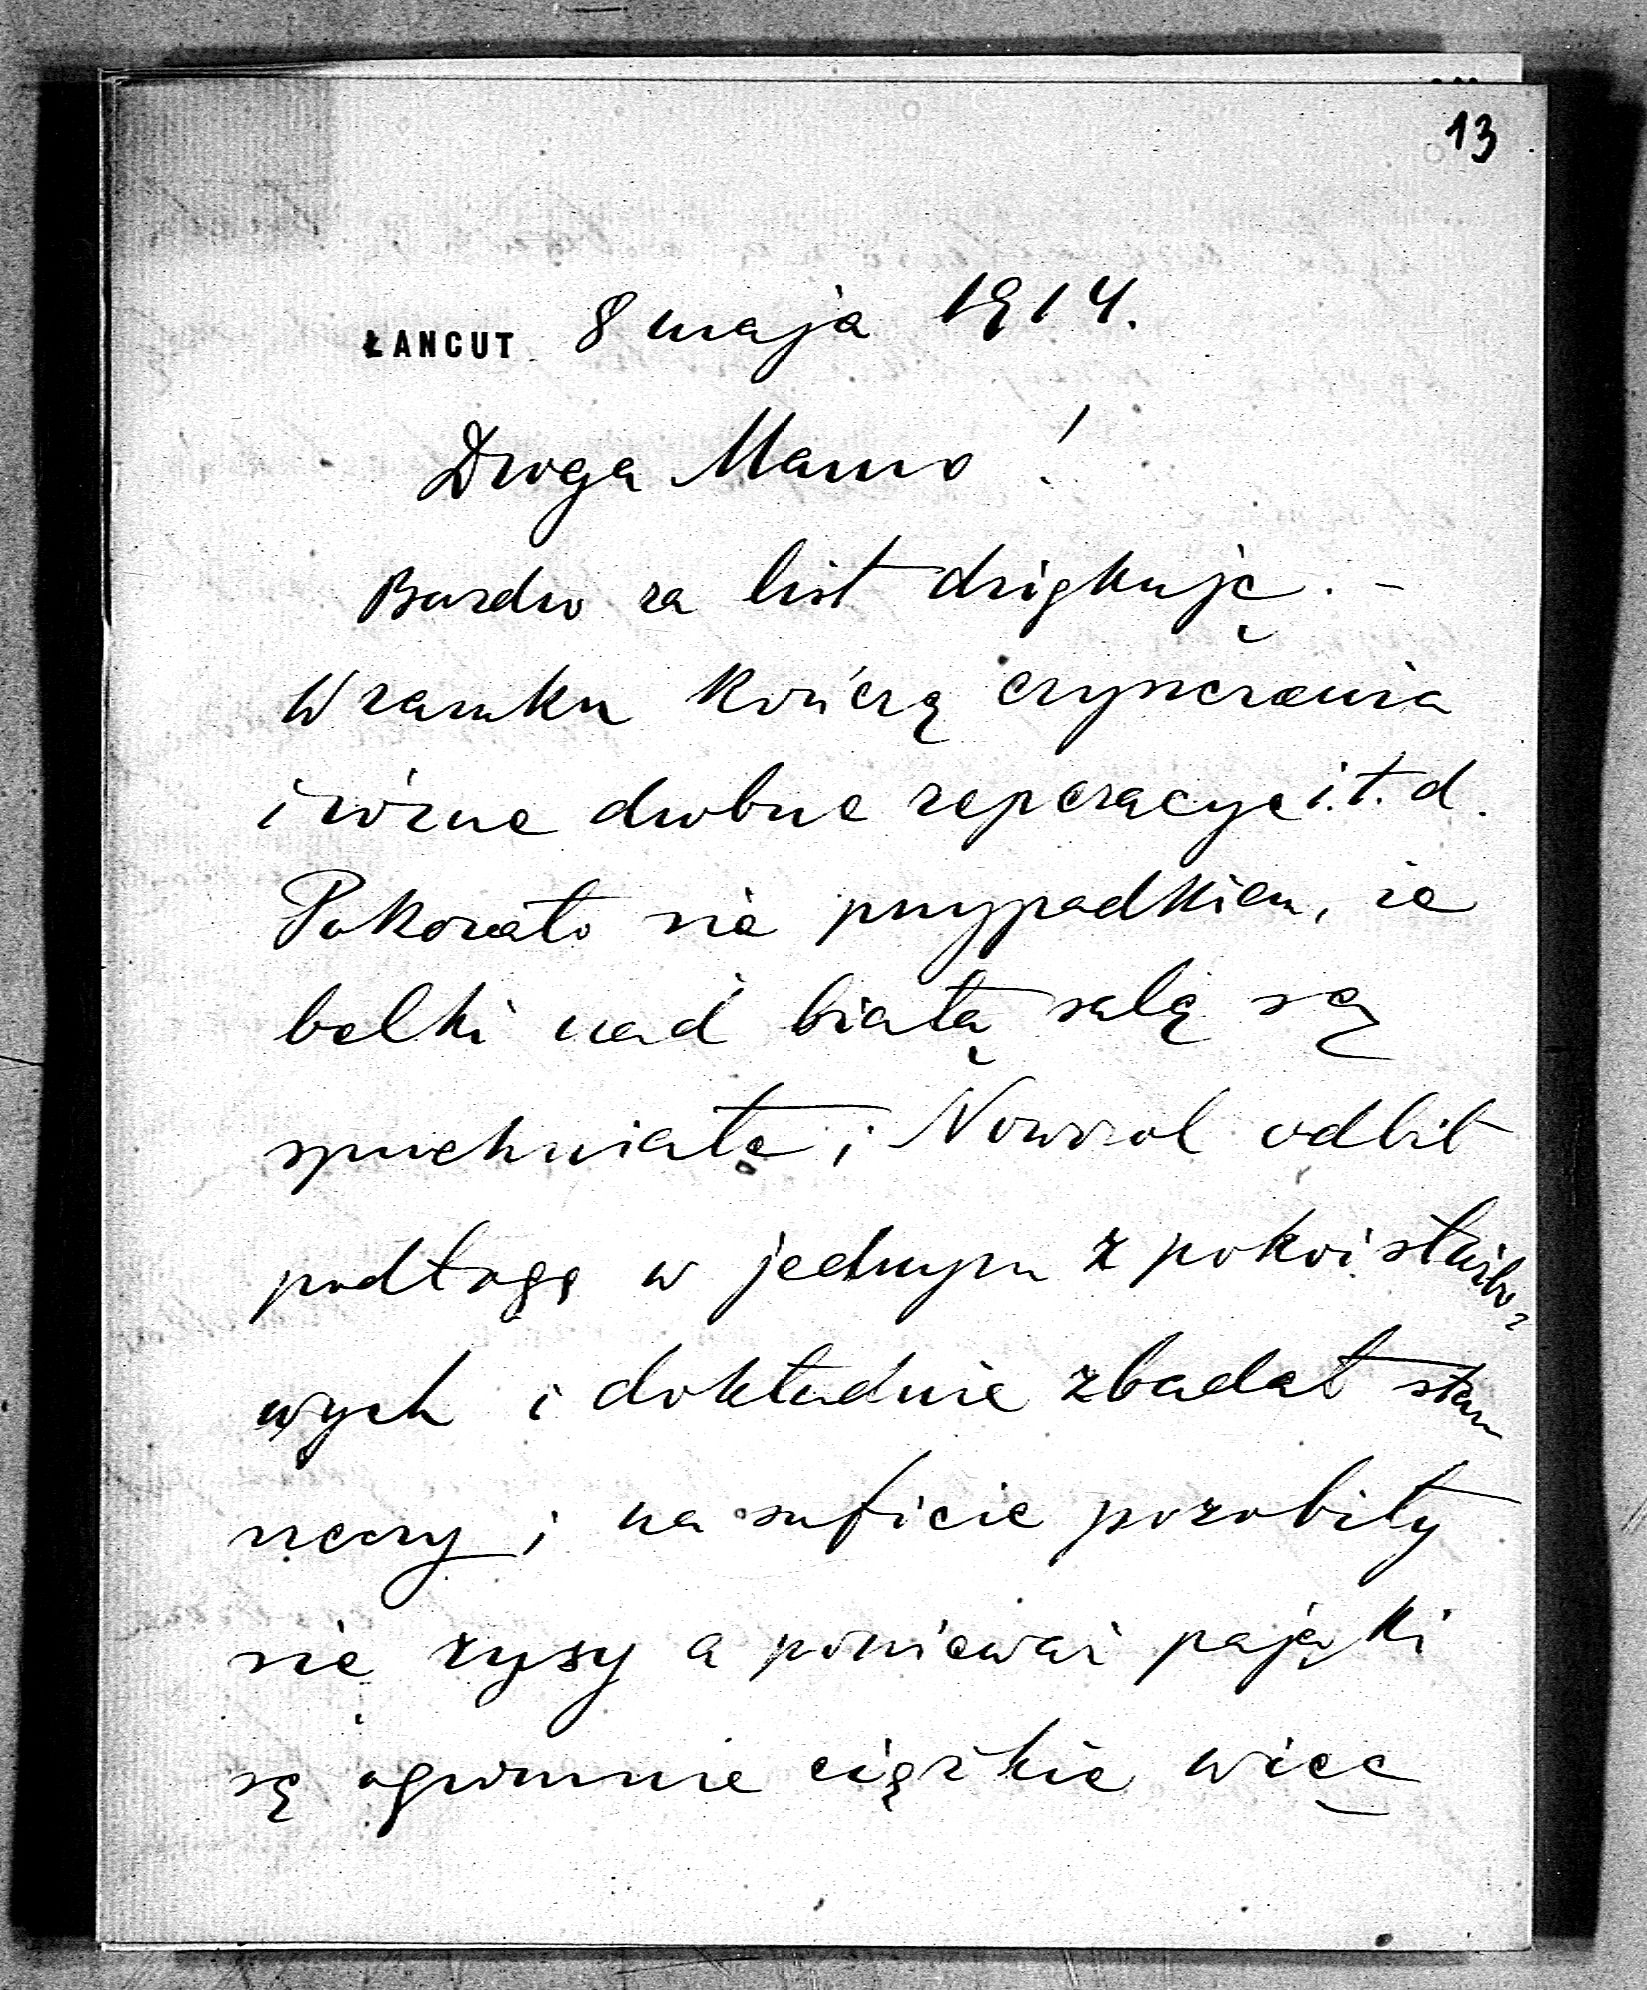 13
ŁANCUT 8 maja 1914.
Droga Mamo!
Bardzo za list dziękuję. –
W zamku kończą czyszczenia
i różne drobne reperacye i.t.d.
Pokazało się przypadkiem, że
belki nad białą salą są
spruchniałe; Noworol odbił
podłogę w jednym z pokoi służbo-
wych i dokładnie zbadał stan
rzeczy; na suficie porobiły
się rysy a ponieważ pająki
są ogromnie ciężkie więc